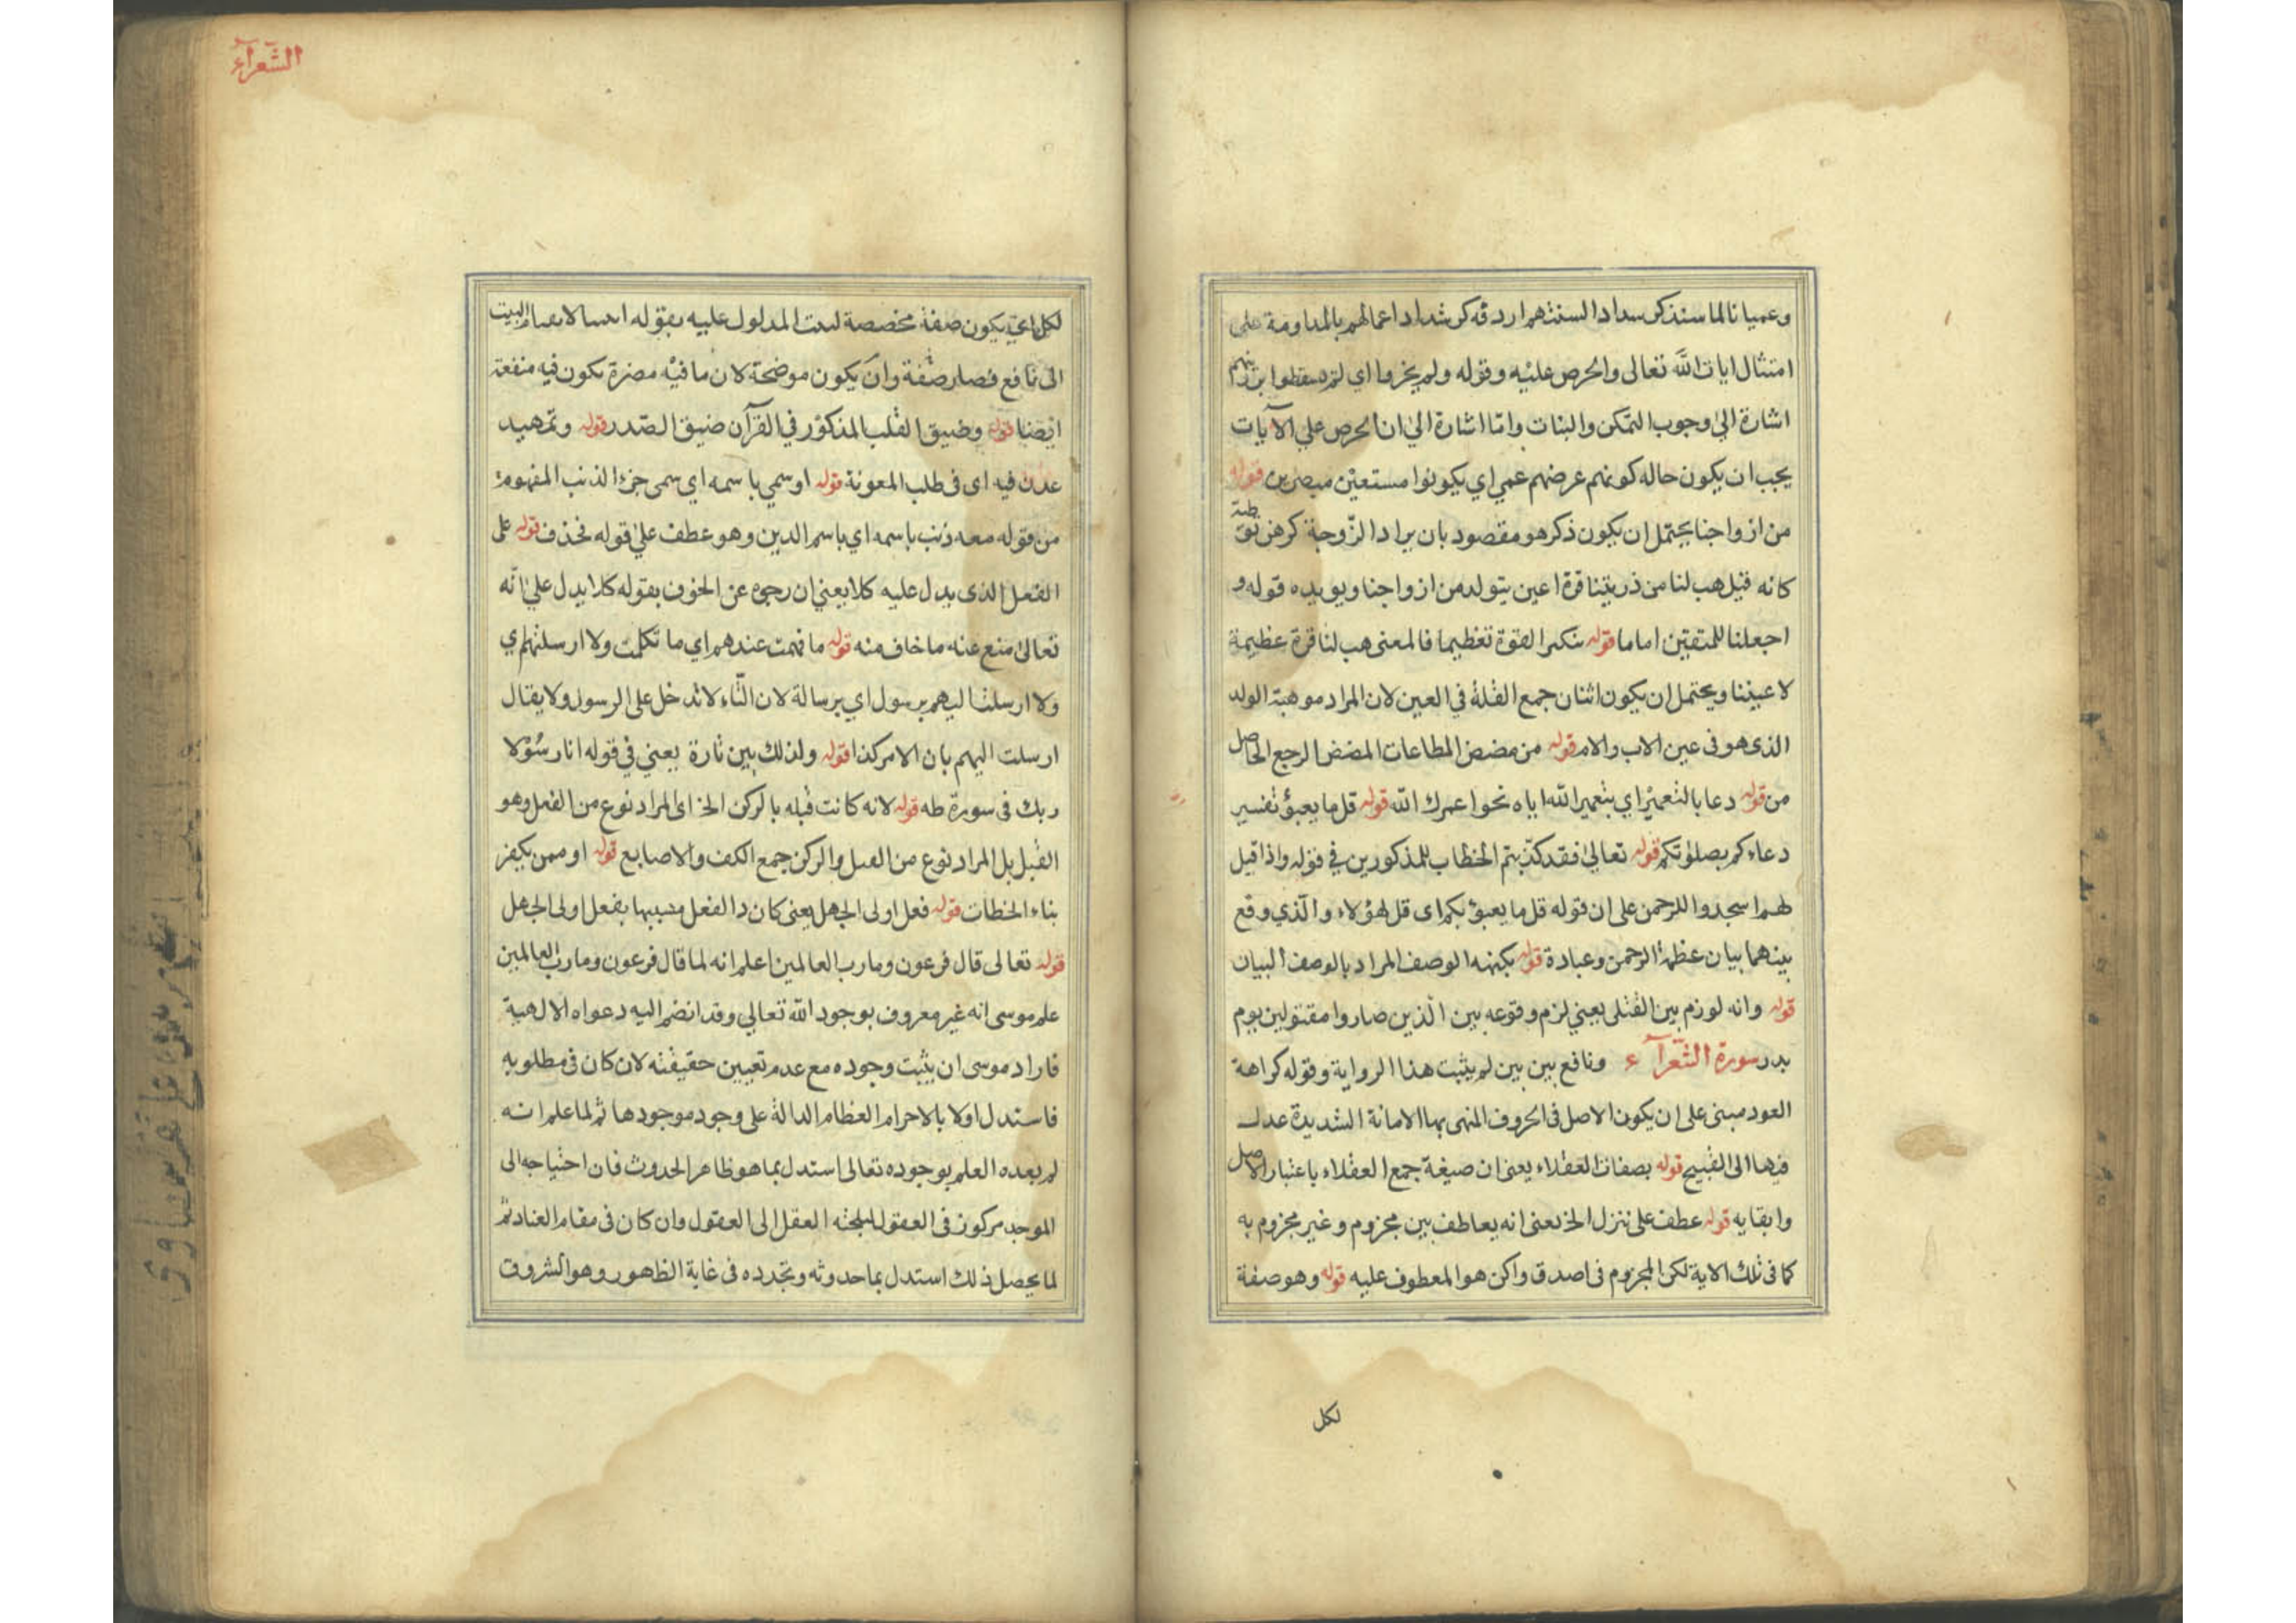 وعميانا لما سنذكر سداد السنتهم اردفه كر شداد اعمالهم بالمداومة على
امتثال ايات الله تعالى والحرص عليه وقوله ولم يخروا اي لم يسقطوا
اشارة الى وجوب التمكن والبنات واما اشارة الى ان الحرص على الآيات
يجب ان يكون حاله كونهم عرضهم عمي اي يكونوا مستعين مبصرين قوله
من ازواجنا يحتمل ان يكون ذكر هو مقصود بان يراد الزوجة كرهن
كانه قيل هب لنا من ذريتنا قرة اعين يتولد من ازواجنا ويويده قوله و
اجعلنا للمتقين اماما قوله تنكير القوة تعظيما فالمعنى هب لنا قرة عظيمة
لاعيننا ويحتمل ان يكون اثنان جمع القلة في العين لان المراد موهبة الولد
الذى هو فى عين الاب والام قوله من مضض المطاعات المضض الرجع الحاصل
من قوله دعا بالتعمير اي بتعمير الله اياه نحوا عمرك الله قوله قل ما يعبؤ تفسير
دعاءكم بصلوتكم قوله تعالى فقد كذبتم الخطاب للمذكورين في قوله واذا قيل
لهم اسجدوا للرحمن على ان قوله قل ما يعبؤ بكم اى قل لهؤلاء والذي وقع
بينهما بيان عظمة الرحمن وعبادة قوله بكنهه الوصف المراد بالوصف البيان
قوله وانه لوزم بين القتلى يعني لزم وقوعه بين الذين صاروا مقتولين يوم
بدر سورة الشعرآء ونافع بين بين لم يثبت هذا الرواية وقوله كراهة
العود مبنى على ان يكون الاصل فى الحروف المنهى بها الامانة الشديدة عدل
فيها الى القبيح قوله بصفات العقلاء يعنى ان صيغة جمع العقلاء باعتبار الاصل
وابقايه قوله عطف على ننزل الخ يعنى انه يعاطف بين مجزوم وغير مجزوم به
كما فى تلك الاية لكن المجزوم فى اصدق واكن هو المعطوف عليه قوله وهو صفة
لكل
الشعرآء
لكل اي يكون صفة مخصصة المدلول عليه بقوله
الى نافع فصار صفة وان يكون موضحة لان ما فيه مضرة يكون فيه منفعة
ايضنا قوله وضيق القلب المذكور في القرآن ضيق الصدر قوله وتمهيد
عذر فيه اى فى طلب المعونة قوله او سمي باسمه اي سمى جزء الذنب المفهوم
من قوله معه ذنب باسمه اي باسم الدين وهو عطف على قوله فحذف قوله على
الفعل الذى يدل عليه كلا يعني ان رجع عن الخوف بقوله كلا يدل على انه
تعالى منع عنه ما خاف منه قوله ما فهمت عندهم اي ما تكلمت ولا ارسلتهم ي
ولا ارسلنا اليهم برسول اي برسالة لان التاء لا تدخل على الرسول ولا يقال
ارسلت اليهم بان الامر كذا قوله ولذلك بين تارة يعني في قوله انا رسولا
ربك فى سورة طه قوله لانه كانت قبله بالركن الخ اى المراد نوع من الفعل وهو
القبل بل المراد نوع من القبل والركن جمع الكف والاصابع قوله او ممن يكفر
بناء الخطات قوله فعل اولى الجهل يعنى كان ذا الفعل مسببها بفعل اولى الجهل
قوله تعالى قال فرعون وما رب العالمين اعلم انه لما قال فرعون وما رب العالمين
علم موسى انه غير معروف بوجود الله تعالي وقد انضم اليه دعواه الالهية
فاراد موسى ان يثبت وجوده مع عدم تعيين حقيقته لان كان فى مطلوبه
فاستدل اولا بالاجرام العظام الدالة على وجود موجودها ثم لما علم انه
لم يعده العلم بوجوده تعالى استدل بما هو ظاهر الحدوث فان احتياجه الى
الموجد مركوز فى العقول العقل الى العقول وان كان فى مقام العناد ثم
لما يحصل ذلك استدل بما حدوثه وتجدده فى غاية الظهور وهو الشروق